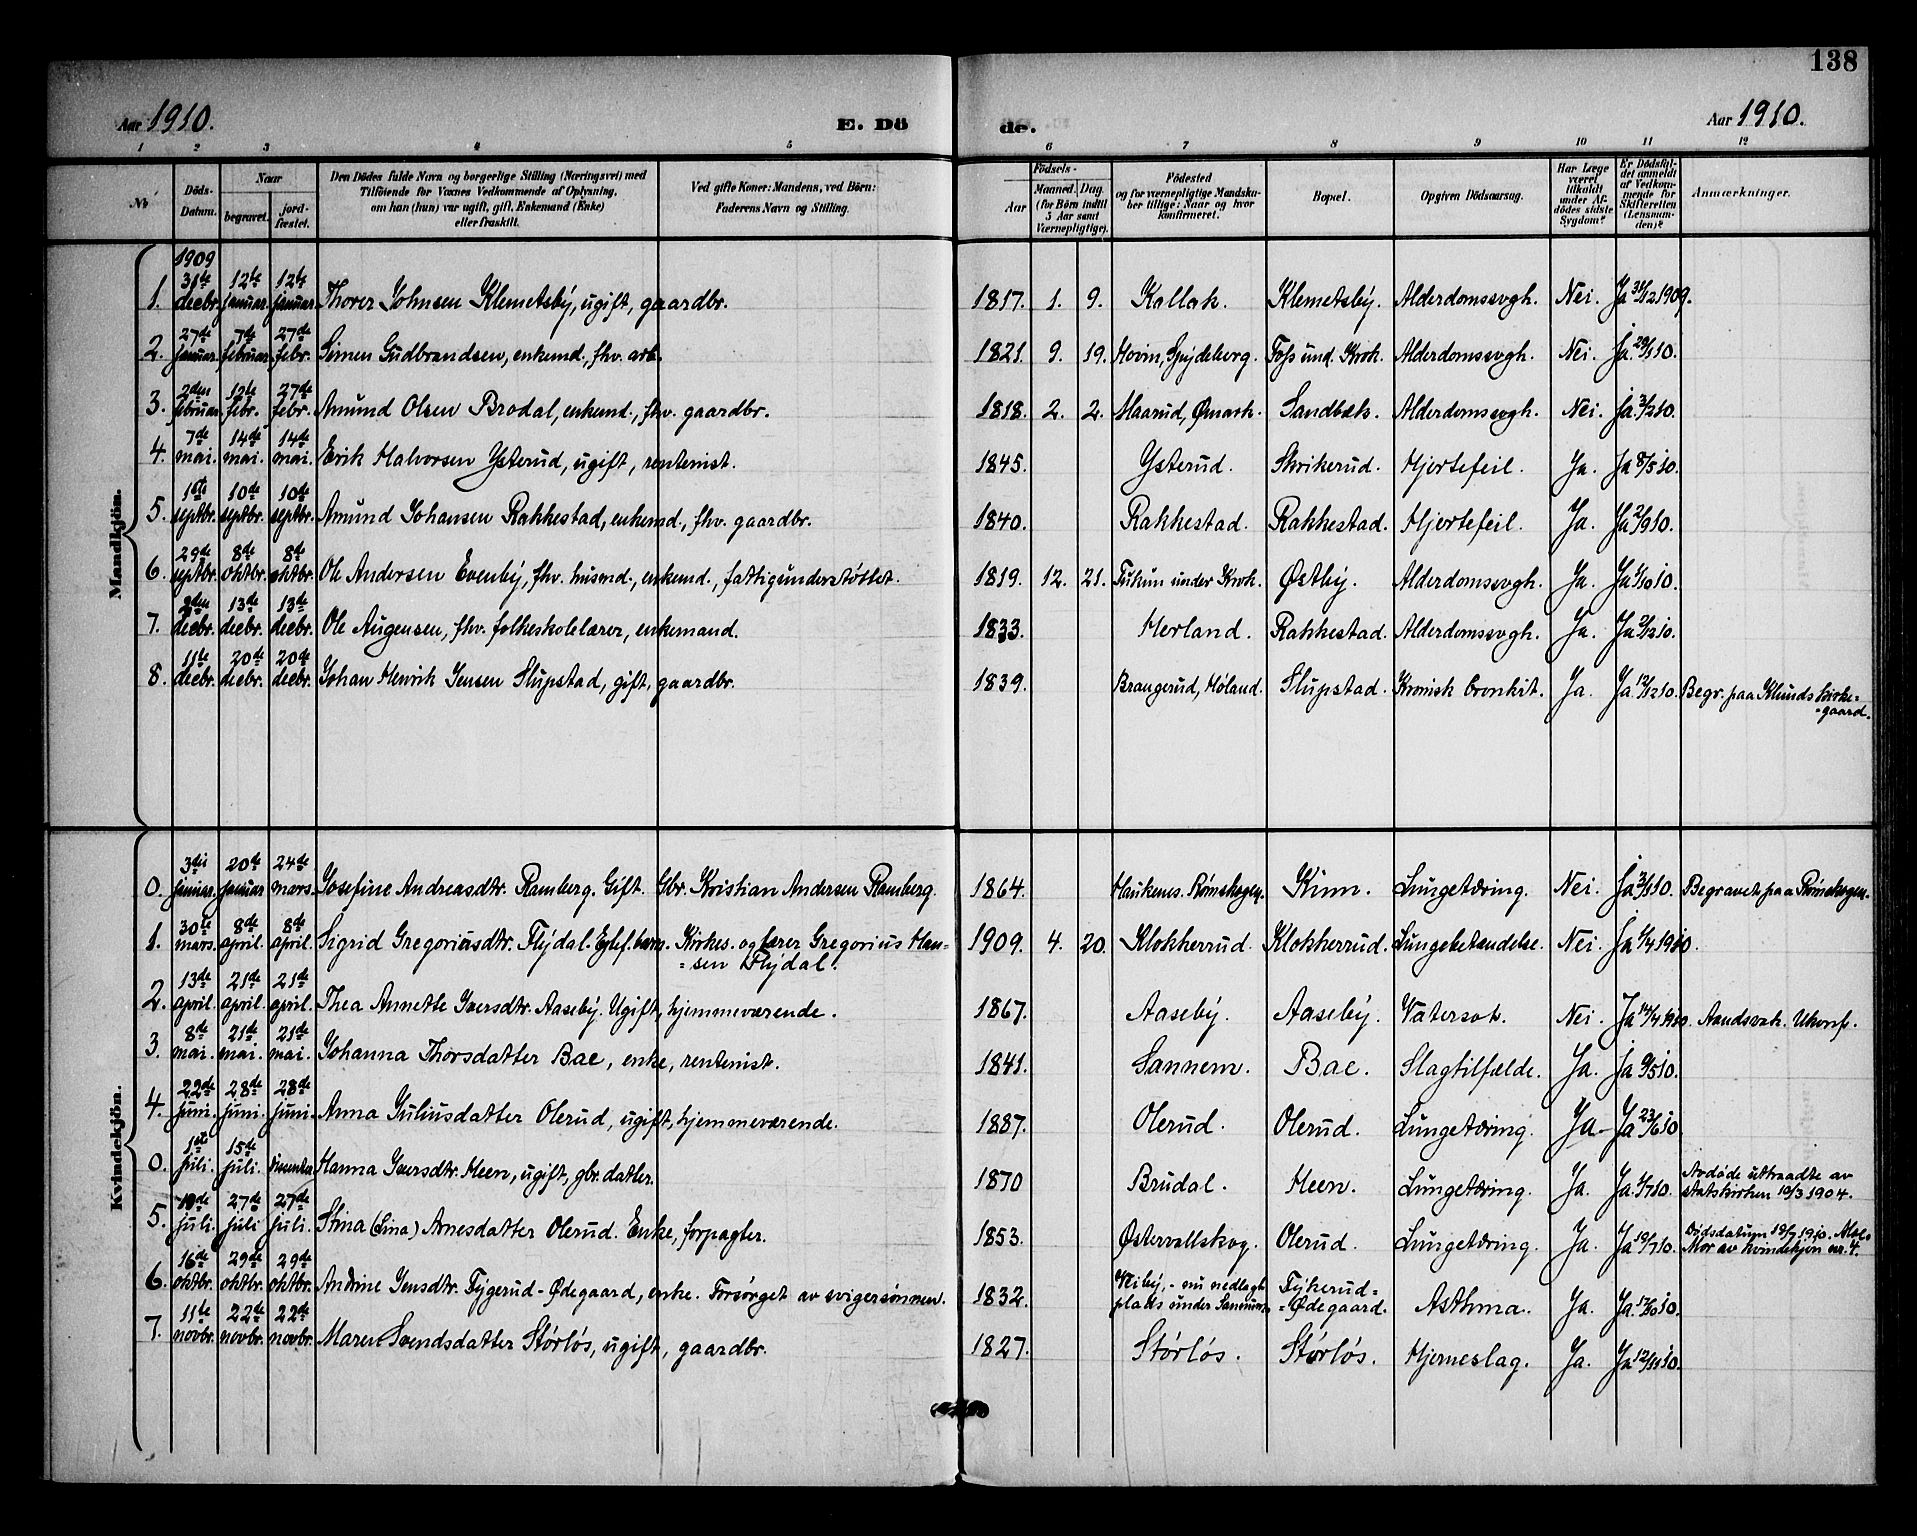 138
Aar 1910. E. Dö de. Aar 1910.
1 2 3 4 5 6 7 8 9 10 11 12
No
Döds-Datum.
Naar
begravet.
jord-fæstet.
Den Dödes fulde Navn og borgerlige Stilling (Næringsvei) med
Tilföiende for Voxnes Vedkommende af Oplysning,
om han (hun) var ugift, gift, Enkemand (Enke)
eller fraskilt.
Ved gifte Koner: Mandens, ved Börn:
Faderens Navn og Stilling.
Födsels-
Aar
Maaned. Dag.
(for Börn indtil
5 Aar samt
Værnepligtige).
Födested
og for værnepligtige Mandska-
ber tillige: Naar og hvor
konfirmeret.
Bopæl.
Opgiven Dödsaarsag.
Har Læge
været
tilkaldt
under Af-
dödes sidste
Sygdom?
Er Dödsfal-
det anmeldt
af Vedkom-
mende for
Skifteretten
(Lensman-
den)?
Anmærkninger.
Mandkjön.
1909
1. 31te decbr. 12te januar. 12te januar. Thorer Johnsen Klemetsby, ugift, gaardbr. 1817. 1. 9. Kallak. Klemetsby. Alderdomssvgh. Nei. Ja 31/12 1909.
2. 27de januar. 7de februar. 27de febr. Simen Gudbrandsen, enkemd., fhv. arb. 1821. 9. 19. Hovin, Spydeberg. Foss und. Krok. Alderdomssvgh. Nei. Ja 29/1 10.
3. 2den februar. 12te febr. 27de febr. Amund Olsen Brodal, enkemd., fhv. gaardbr. 1818. 2. 2. Haarud, Ømark. Sandbæk. Alderdomssvgh. Nei. Ja 3/2 10.
4. 7de mai. 14de mai. 14de mai. Erik Halvorsen Ysterud, ugift, rentenist. 1845. Ysterud. Skrikerud. Hjertefeil. Ja. Ja 8/5 10.
5. 1ste septbr. 10de septbr. 10de septbr. Amund Johansen Rakkestad, enkemd., fhv. gaardbr. 1840. Rakkestad. Rakkestad. Hjertefeil. Ja. Ja 2/9 10.
6. 29de septbr. 8de oktbr. 8de oktbr. Ole Andersen Evenby, fhv. husmd., enkemd., fattigunderstöttet. 1819. 12. 21. Tukun under Krok. Østby. Alderdomssvgh. Ja. Ja 1/10 10.
7. 2den decbr. 13de decbr. 13de decbr. Ole Augensen, fhv. folkeskolelærer, enkemand. 1833. Herland. Rakkestad. Alderdomssvgh. Ja. Ja 2/12 10.
8. 11te decbr. 20de decbr. 20de decbr. Johan Henrik Jensen Slupstad, gift, gaardbr. 1839. Brangerud, Høland. Slupstad. Kronisk bronkit. Ja. Ja 12/12 10. Begr. paa Klunds kirke-
=gaard.
Kvindekjön.
0. 3die januar. 20de januar 24de mars. Josefine Andreasdtr. Ramberg. Gift. Gbr. Kristian Andersen Ramberg. 1864. Haukenes. Rømskogen. Kinn. Lungetæring. Nei. Ja 3/1 10. Begravet paa Rømskogen.
1. 30te mars. 8de april. 8de april. Sigrid Gregoriusdtr. Flydal. Egtef. barn. Kirkes. og lærer Gregorius Han=
=sen Flydal. 1909. 4. 20. Klokkerrud. Klokkerrud. Lungebetændelse. Nei. Ja 1/4 1910.
2. 13de april. 21de april. 21de april. Thea Annette Iversdtr. Aaseby. Ugift, hjemmeværende. 1867. Aaseby. Aaseby. Vatersot. Nei. Ja 14/4 1910. Aandsvak. Ukonf.
3. 8de mai. 21de mai. 21de mai. Johanna Thorsdatter Bae, enke, rentenist. 1841. Sannem. Bae. Slagtilfælde. Ja. Ja 9/5 10.
4. 22de juni. 28de juni. 28de juni. Anna Juliusdatter Olerud, ugift, hjemmeværende. 1887. Olerud. Olerud. Lungetæring. Ja Ja 23/6 10.
0. 1ste juli. 15de juli. Hanna Iversdtr. Heen, ugift, gbr. datter. 1870 Brudal. Heen. Lungetæring. Ja. Ja 1/7 10. Avdøde uttraadte av
statskirken 10/3 1904.
5. juli. 27de juli 27de juli. Stina (Lina) Arnesdatter Olerud. Enke, forpagter. 1853. Østervallskog. Olerud. Lungetæring. Ja. Ja 19/7 10. Dødsdatum 18/7 1910.
Mor av kvindekjøn nr. 4.
6. 16de oktbr. 29de oktbr. 29de oktbr. Andrine Jensdtr. Fygerud-Ødegaard, enke. Forsørget av svigersønnen. 1832. Viby, - nu nedlagt
plads under Sannum. Fykerud=
=Ødegaard. Asthma. Ja. Ja 17/10 10.
7. 11te novbr. 22de novbr. 22de novbr. Maren Svendsdatter Störlös, ugift, gaardbr. 1827. Störlös. Störlös. Hjerneslag. Ja. Ja 12/11 10.